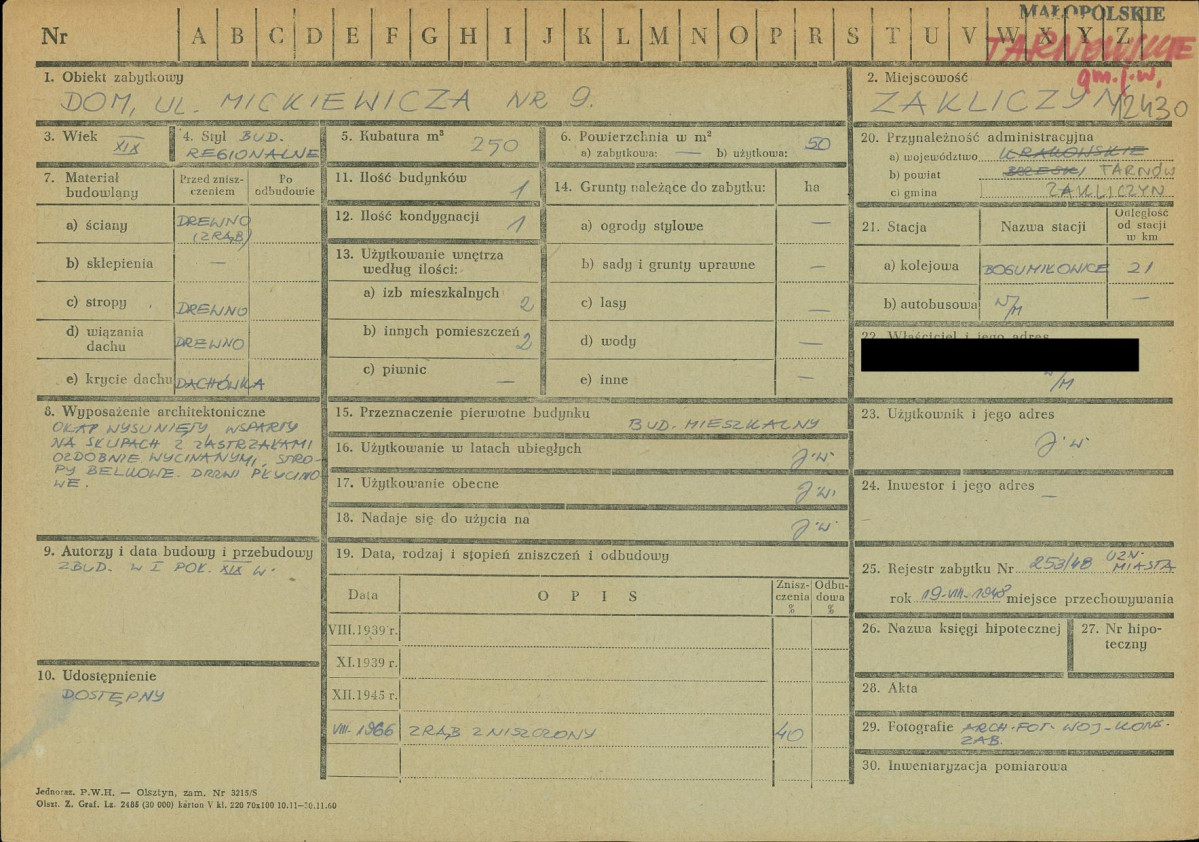 MAŁOPOLSKIE
Nr A B C D E F G H I J K L M N O P R S T U V W X Y Z
TARNOWSKIE
gm. j.w.
1. Obiekt zabytkowy
DOM, UL. MICKIEWICZA NR 9.
2. Miejscowość
ZAKLICZYN
12430
3. Wiek
XIX
4. Styl BUD.
REGIONALNE
5. Kubatura m³
250
6. Powierzchnia w m²
a) zabytkowa: — b) użytkowa: 50
7. Materiał budowlany
Przed zniszczeniem
Po odbudowie
a) ściany DREWNO
(ZRĄB)
b) sklepienia —
c) stropy DREWNO
d) wiązania
dachu DREWNO
e) krycie dachu DACHÓWKA
8. Wyposażenie architektoniczne
OKAP WYSUNIĘTY WSPARTY
NA SŁUPACH Z ZASTRZAŁAMI
OZDOBNIE WYCINANYMI, STRO-
PY BELKOWE. DRZWI PŁYCINO
WE.
9. Autorzy i data budowy i przebudowy
ZBUD. W I POŁ. XIX W.
10. Udostępnienie
DOSTĘPNY
11. Ilość budynków 1
12. Ilość kondygnacji 1
13. Użytkowanie wnętrza
według ilości:
a) izb mieszkalnych 2
b) innych pomieszczeń 2
c) piwnic —
14. Grunty należące do zabytku: ha
a) ogrody stylowe —
b) sady i grunty uprawne —
c) lasy —
d) wody —
e) inne —
15. Przeznaczenie pierwotne budynku
BUD. MIESZKALNY
16. Użytkowanie w latach ubiegłych
J.W.
17. Użytkowanie obecne
J.W.
18. Nadaje się do użycia na
J.W.
19. Data, rodzaj i stopień zniszczeń i odbudowy
Data O P I S Znisz-
czenia
% Odbu-
dowa
%
VIII.1939 r.
XI.1939 r.
XII.1945 r.
VIII. 1966 ZRĄB ZNISZCZONY 40
20. Przynależność administracyjna
a) województwo KRAKOWSKIE
b) powiat BRZESKI TARNÓW
c) gmina ZAKLICZYN
21. Stacja Nazwa stacji Odległość
od stacji
w km
a) kolejowa BOGUMIŁOWICE 21
b) autobusowa W/M —
22. Właściciel i jego adres
W/M
23. Użytkownik i jego adres
J.W.
24. Inwestor i jego adres
—
25. Rejestr zabytku Nr 253/48 UZN.
MIASTA
rok 19.VIII.1948 miejsce przechowywania
26. Nazwa księgi hipotecznej
27. Nr hipo-
teczny
28. Akta
29. Fotografie ARCH. FOT. WOJ. KONS.
ZAB.
30. Inwentaryzacja pomiarowa
Jednoraz. P.W.H. — Olsztyn, zam. Nr 3215/S
Olszt. Z. Graf. Lz. 2485 (30 000) karton V kl. 220 70x100 10.11—30.11.60